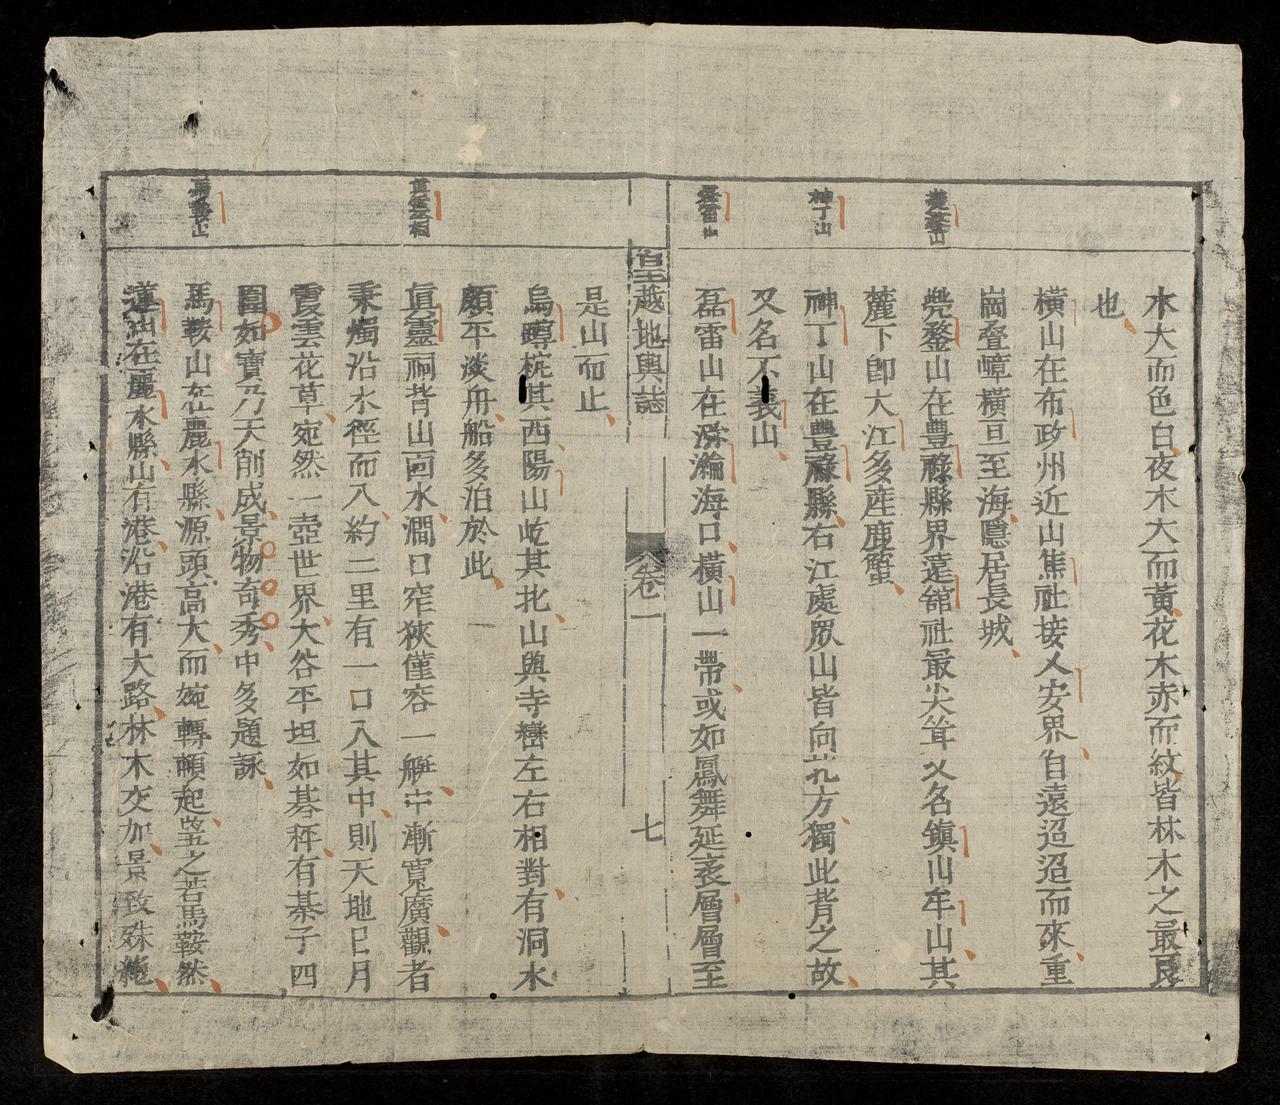 木大而色白夜木大而黃花木赤而紋皆林木之最良
也
橫山在布政州近山焦社接乂安界自遠迢迢而來重
崗叠嶂橫亘至海隱居長城
兠鍪山在豊祿縣界遠舘社最尖耸又名鎮山牟山其
麓下卽大江多産鹿蟹
神丁山在豊祿縣右江處眾山皆向北方獨此背之故
又名不義山
磊雷山在瀚海口橫山一帶或如鳳舞延袤層層至
神丁山
磊雷山
皇越地輿誌
卷一
七
是山而止
烏蹲梡其西陽山屹其北山與寺巒左右相對有洞水
頗平淡舟船多泊於此
真靈祠背山面水澗口窄狹僅容一艇中漸寬廣觀者
秉燭沿水徑而入約二里有一口入其中則天地日月
霞雲花草宛然一壺世界大谷平坦如碁秤有棊子四
圍如寶乃天削成景物奇秀中多題詠
馬鞍山在麗水縣源頭高大而婉轉頓起望之若馬鞍然
蓮山在麗水縣山有港沿港有大路林木交加景致殊絕
馬鞍山